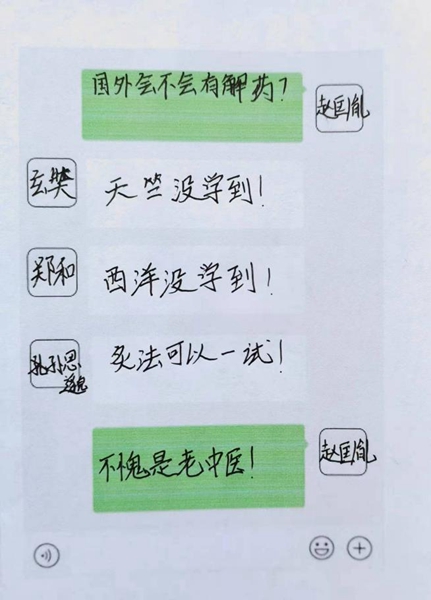 国外会不会有解药？
赵匡胤
玄奘
天竺没学到！
郑和
西洋没学到！
孙思邈
灸法可以一试！
不愧是老中医！
赵匡胤